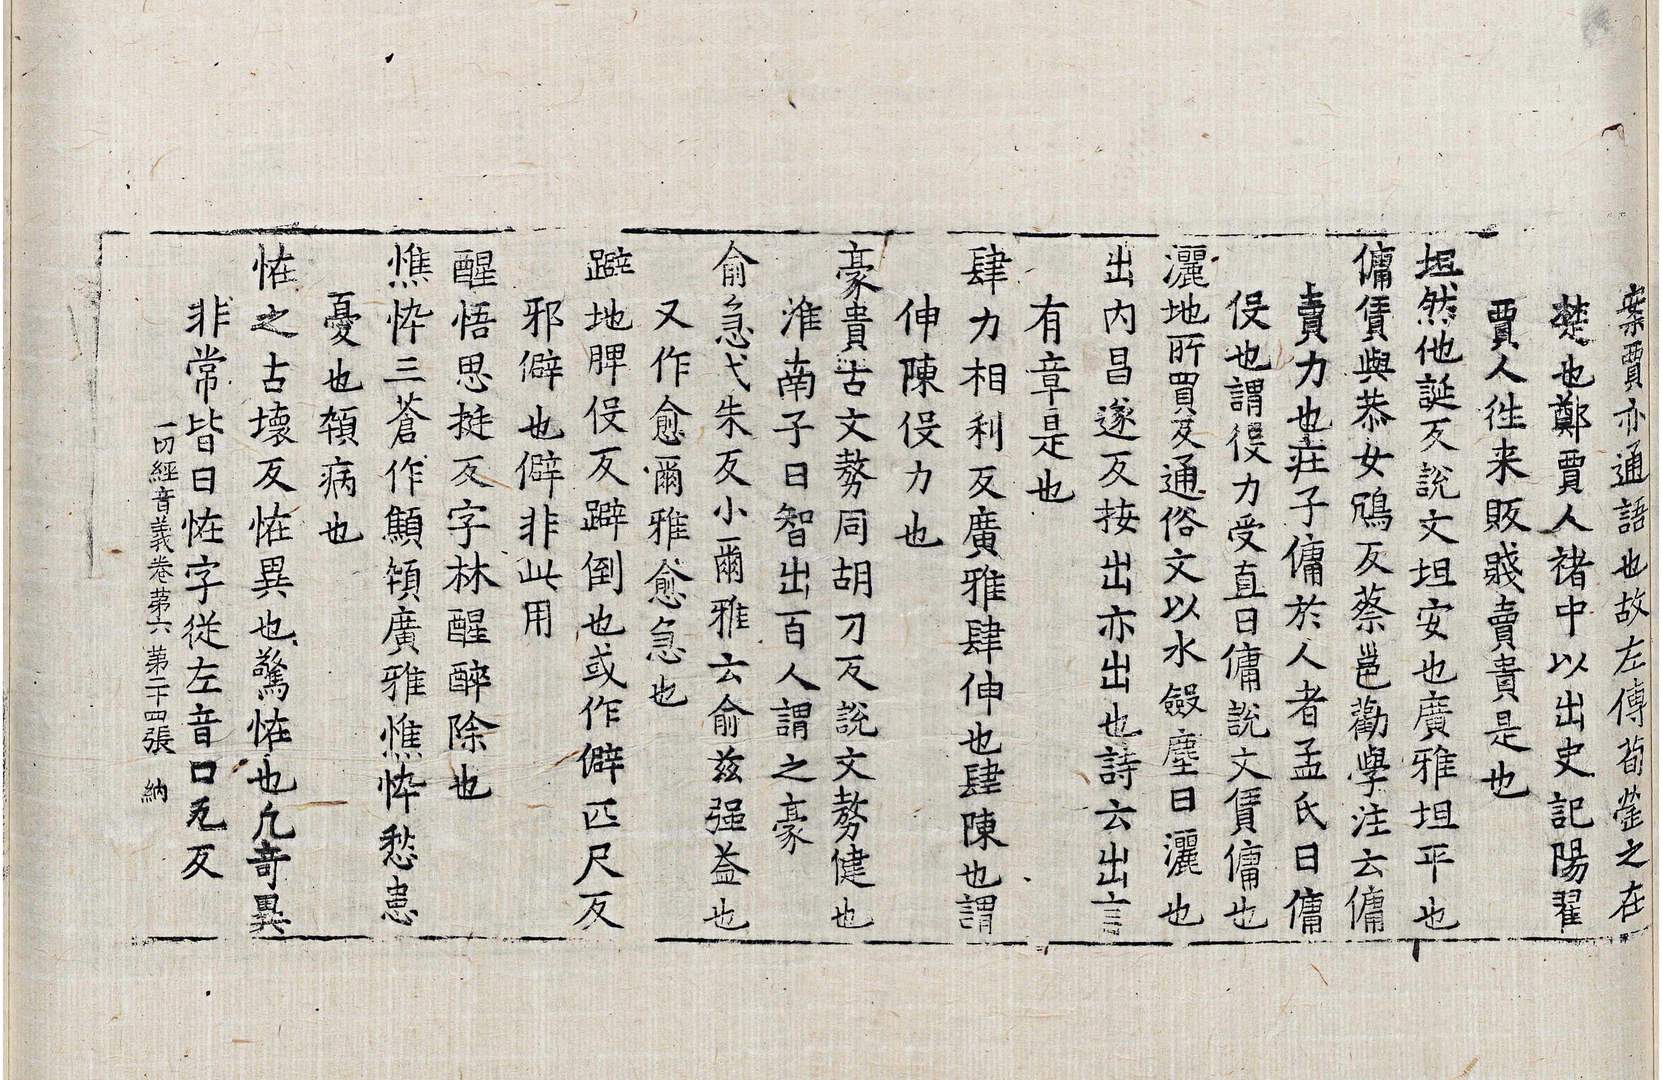 案賈亦通語也故左傳荀罃之在
楚也鄭賈人褚中以出史記陽翟
賈人徃来販賤賣貴是也
坦然他誕反說文坦安也廣雅坦平也
傭賃與恭女鴆反蔡邕勸學注云傭
賣力也莊子傭於人者孟氏曰傭
伇也謂伇力受直曰傭說文賃傭也
灑地所買反通俗文以水斂塵曰灑也
出內昌遂反按出亦出也詩云出言
有章是也
肆力相利反廣雅肆伸也肆陳也謂
伸陳伇力也
豪貴古文勢同胡刀反說文勢健也
淮南子曰智出百人謂之豪
俞急弋朱反小爾雅云俞兹强益也
又作愈爾雅愈急也
躃地脾伇反躃倒也或作僻匹尺反
邪僻也僻非此用
醒悟思挺反字林醒醉除也
憔悴三蒼作顦顇廣雅憔悴愁恚
憂也顇病也
恠之古壞反恠異也驚恠也凢奇異
非常皆曰恠字從左音口兀反
一切經音義卷苐六 第二十四張 納